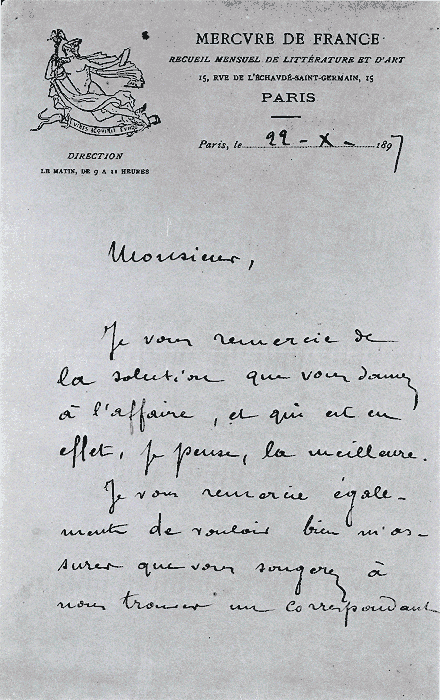 MERCVRE DE FRANCE
RECUEIL MENSUEL DE LITTÉRATURE ET D'ART
15, RUE DE L'ÉCHAUDÉ-SAINT-GERMAIN, 15
PARIS
VIRES ACQUIRIT EUNDO
DIRECTION
LE MATIN, DE 9 A 11 HEURES
Paris, le 22 - X - 1897
Monsieur,
Je vous remercie de
la solution que vous donnez
à l'affaire, et qui est en
effet, je pense, la meilleure.
Je vous remercie égale-
ment de vouloir bien m'as-
surer que vous songerez à
nous trouver un correspondant